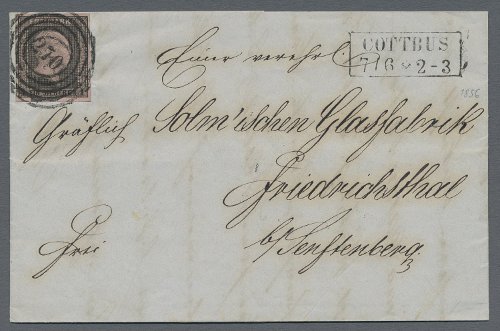 COTTBUS
7 16 * 2-3
Einer verehrl.
Gräflich Solm'ischen Glasfabrik
Friedrichsthal
Frei
b/ Senftenberg
1856